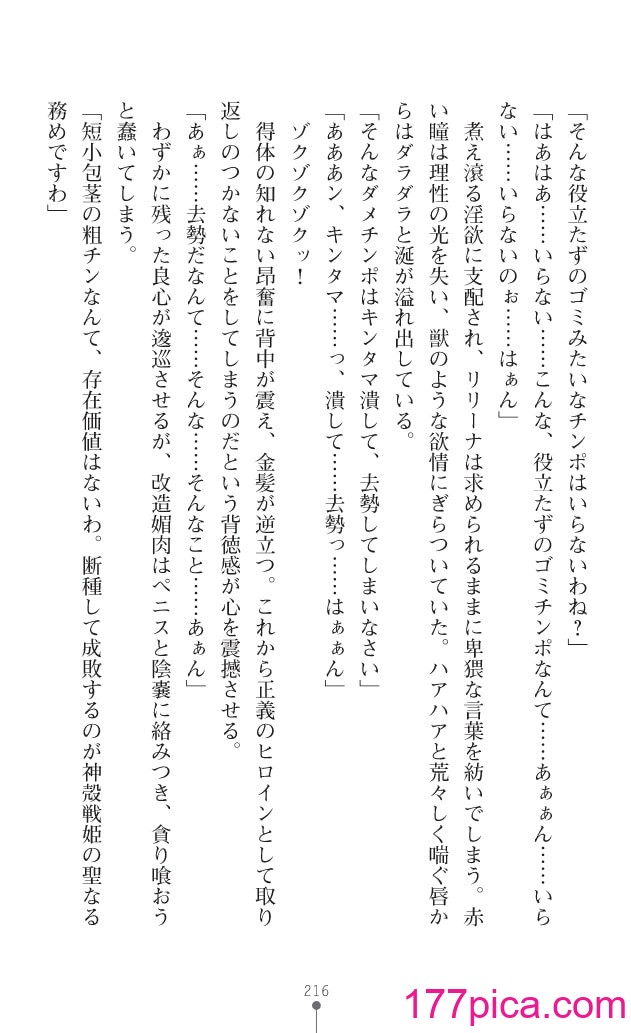 「そんな役立たずのゴミみたいなチンポはいらないわね？」
「はあはあ……いらない……こんな、役立たずのゴミチンポなんて……あぁぁん……いら
ない……いらないのぉ……はぁん」
煮え滾る淫欲に支配され、リリーナは求められるままに卑猥な言葉を紡いでしまう。赤
い瞳は理性の光を失い、獣のような欲情にぎらついていた。ハアハアと荒々しく喘ぐ唇か
らはダラダラと涎が溢れ出している。
「そんなダメチンポはキンタマ潰して、去勢してしまいなさい」
「あああン、キンタマ……っ、潰して……去勢っ……はぁぁん」
ゾクゾクゾクッ！
得体の知れない昂奮に背中が震え、金髪が逆立つ。これから正義のヒロインとして取り
返しのつかないことをしてしまうのだという背徳感が心を震撼させる。
「あぁ……去勢だなんて……そんな……そんなこと……あぁん」
わずかに残った良心が逡巡させるが、改造媚肉はペニスと陰嚢に絡みつき、貪り喰おう
と蠢いてしまう。
「短小包茎の粗チンなんて、存在価値はないわ。断種して成敗するのが神殻戦姫の聖なる
務めですわ」
216
177pica.com